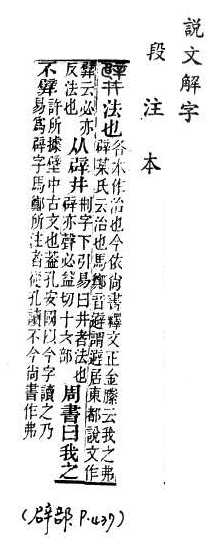 說文解字
段注本
𨐨法也各本作治也今依尚書釋文正金縢云我之弗
辟某氏云治也馬鄭音避謂避居東都說文作
𨐨云必亦
反法也从辟井刑字下引易曰井者法也
辟亦聲必益切十六部周書曰我之
不𨐨許所據壁中古文也蓋孔安國以今字讀之乃
易爲辟字馬鄭所注者從孔讀不今尚書作弗
(辟部 P.437)